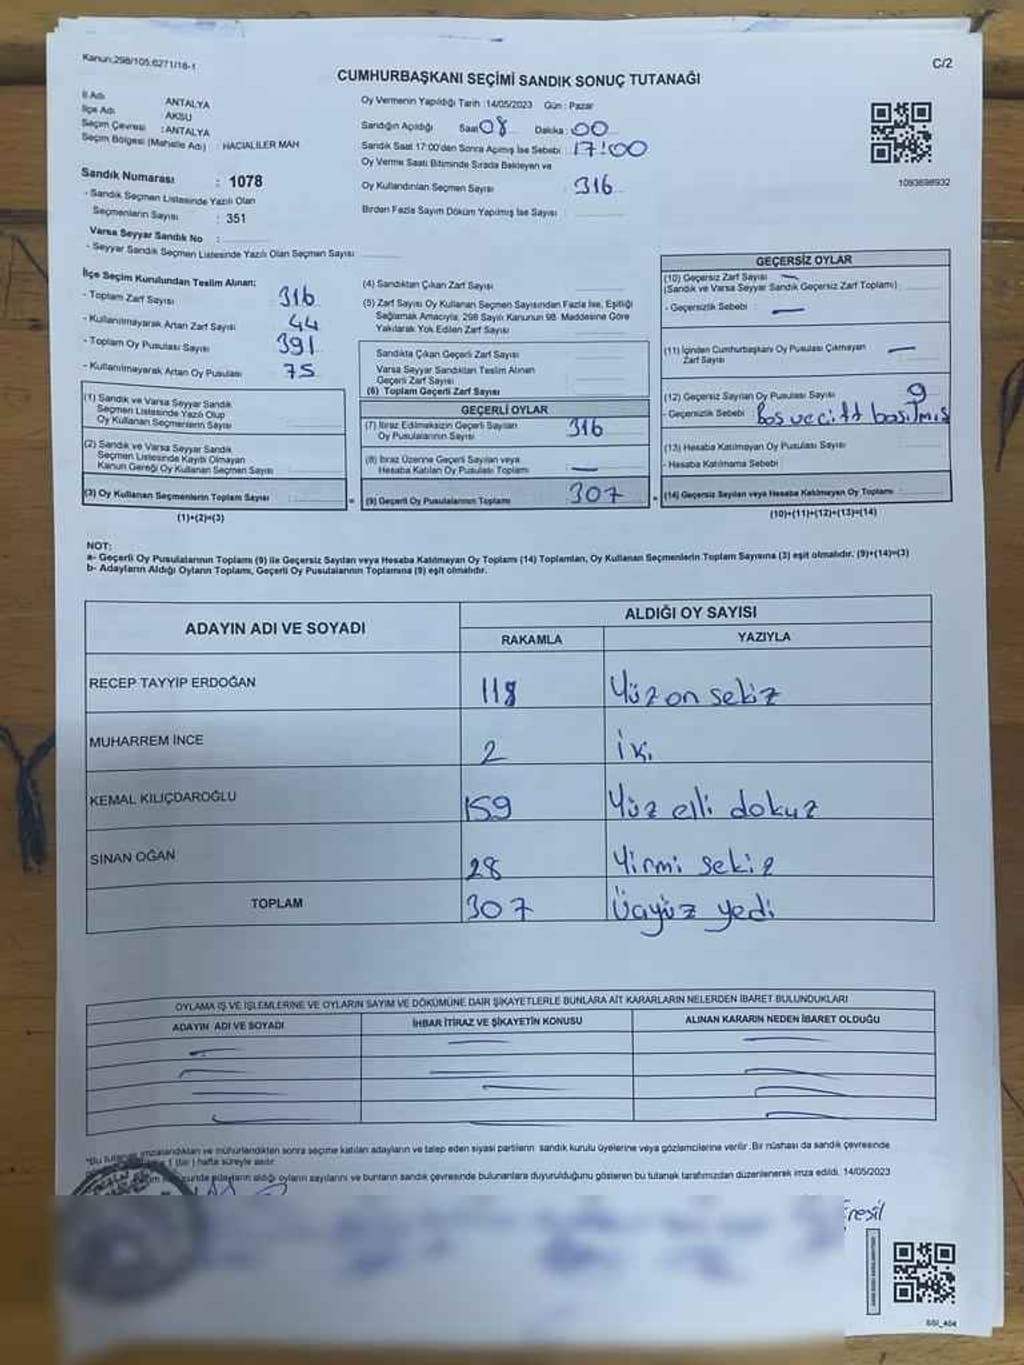 Kanun:298/105;6271/18-1
C/2
CUMHURBAŞKANI SEÇİMİ SANDIK SONUÇ TUTANAĞI
İl Adı ANTALYA
İlçe Adı AKSU
Seçim Çevresi : ANTALYA
Seçim Bölgesi (Mahalle Adı) : HACIALİLER MAH
Sandık Numarası : 1078
- Sandık Seçmen Listesinde Yazılı Olan
Seçmenlerin Sayısı : 351
Varsa Seyyar Sandık No :
- Seyyar Sandık Seçmen Listesinde Yazılı Olan Seçmen Sayısı
Oy Vermenin Yapıldığı Tarih :14/05/2023 Gün : Pazar
Sandığın Açıldığı Saat 08 Dakika : 00
Sandık Saat 17:00'den Sonra Açılmış İse Sebebi : 17:00
Oy Verme Saati Bitiminde Sırada Bekleyen ve
Oy Kullandırılan Seçmen Sayısı : 316
Birden Fazla Sayım Döküm Yapılmış İse Sayısı :
1093698932
İlçe Seçim Kurulundan Teslim Alınan;
- Toplam Zarf Sayısı 316
- Kullanılmayarak Artan Zarf Sayısı 44
- Toplam Oy Pusulası Sayısı 391
- Kullanılmayarak Artan Oy Pusulası 75
(1) Sandık ve Varsa Seyyar Sandık
Seçmen Listesinde Yazılı Olup
Oy Kullanan Seçmenlerin Sayısı
(2) Sandık ve Varsa Seyyar Sandık
Seçmen Listesinde Kayıtlı Olmayan
Kanun Gereği Oy Kullanan Seçmen Sayısı
(3) Oy Kullanan Seçmenlerin Toplam Sayısı
(1)+(2)=(3)
(4) Sandıktan Çıkan Zarf Sayısı
(5) Zarf Sayısı Oy Kullanan Seçmen Sayısından Fazla İse, Eşitliği
Sağlamak Amacıyla, 298 Sayılı Kanunun 98. Maddesine Göre
Yakılarak Yok Edilen Zarf Sayısı
Sandıkta Çıkan Geçerli Zarf Sayısı
Varsa Seyyar Sandıktan Teslim Alınan
Geçerli Zarf Sayısı
(6) Toplam Geçerli Zarf Sayısı
GEÇERLİ OYLAR
(7) İtiraz Edilmeksizin Geçerli Sayılan
Oy Pusulalarının Sayısı 316
(8) İtiraz Üzerine Geçerli Sayılan veya
Hesaba Katılan Oy Pusulası Toplamı —
=
(9) Geçerli Oy Pusulalarının Toplamı 307
GEÇERSİZ OYLAR
(10) Geçersiz Zarf Sayısı —
(Sandık ve Varsa Seyyar Sandık Geçersiz Zarf Toplamı)
- Geçersizlik Sebebi : —
(11) İçinden Cumhurbaşkanı Oy Pusulası Çıkmayan —
Zarf Sayısı
(12) Geçersiz Sayılan Oy Pusulası Sayısı 9
- Geçersizlik Sebebi : Boş ve çift basılmış
(13) Hesaba Katılmayan Oy Pusulası Sayısı
- Hesaba Katılmama Sebebi
+ (14) Geçersiz Sayılan veya Hesaba Katılmayan Oy Toplamı
(10)+(11)+(12)+(13)=(14)
NOT:
a- Geçerli Oy Pusulalarının Toplamı (9) ile Geçersiz Sayılan veya Hesaba Katılmayan Oy Toplamı (14) Toplamları, Oy Kullanan Seçmenlerin Toplam Sayısına (3) eşit olmalıdır. (9)+(14)=(3)
b- Adayların Aldığı Oyların Toplamı, Geçerli Oy Pusulalarının Toplamına (9) eşit olmalıdır.
ADAYIN ADI VE SOYADI
ALDIĞI OY SAYISI
RAKAMLA YAZIYLA
RECEP TAYYİP ERDOĞAN 118 Yüz on sekiz
MUHARREM İNCE 2 İki
KEMAL KILIÇDAROĞLU 159 Yüz elli dokuz
SİNAN OĞAN 28 Yirmi sekiz
TOPLAM 307 Üçyüz yedi
OYLAMA İŞ VE İŞLEMLERİNE VE OYLARIN SAYIM VE DÖKÜMÜNE DAİR ŞİKAYETLERLE BUNLARA AİT KARARLARIN NELERDEN İBARET BULUNDUKLARI
ADAYIN ADI VE SOYADI İHBAR İTİRAZ VE ŞİKAYETİN KONUSU ALINAN KARARIN NEDEN İBARET OLDUĞU
*Bu tutanak imzalandıktan ve mühürlendikten sonra seçime katılan adayların ve talep eden siyasi partilerin sandık kurulu üyelerine veya gözlemcilerine verilir. Bir nüshası da sandık çevresinde
1 (bir) hafta süreyle asılır.
adayların aldığı oyların sayılarını ve bunların sandık çevresinde bulunanlara duyurulduğunu gösteren bu tutanak tarafımızdan düzenlenerek imza edildi. 14/05/2023
SSI_404